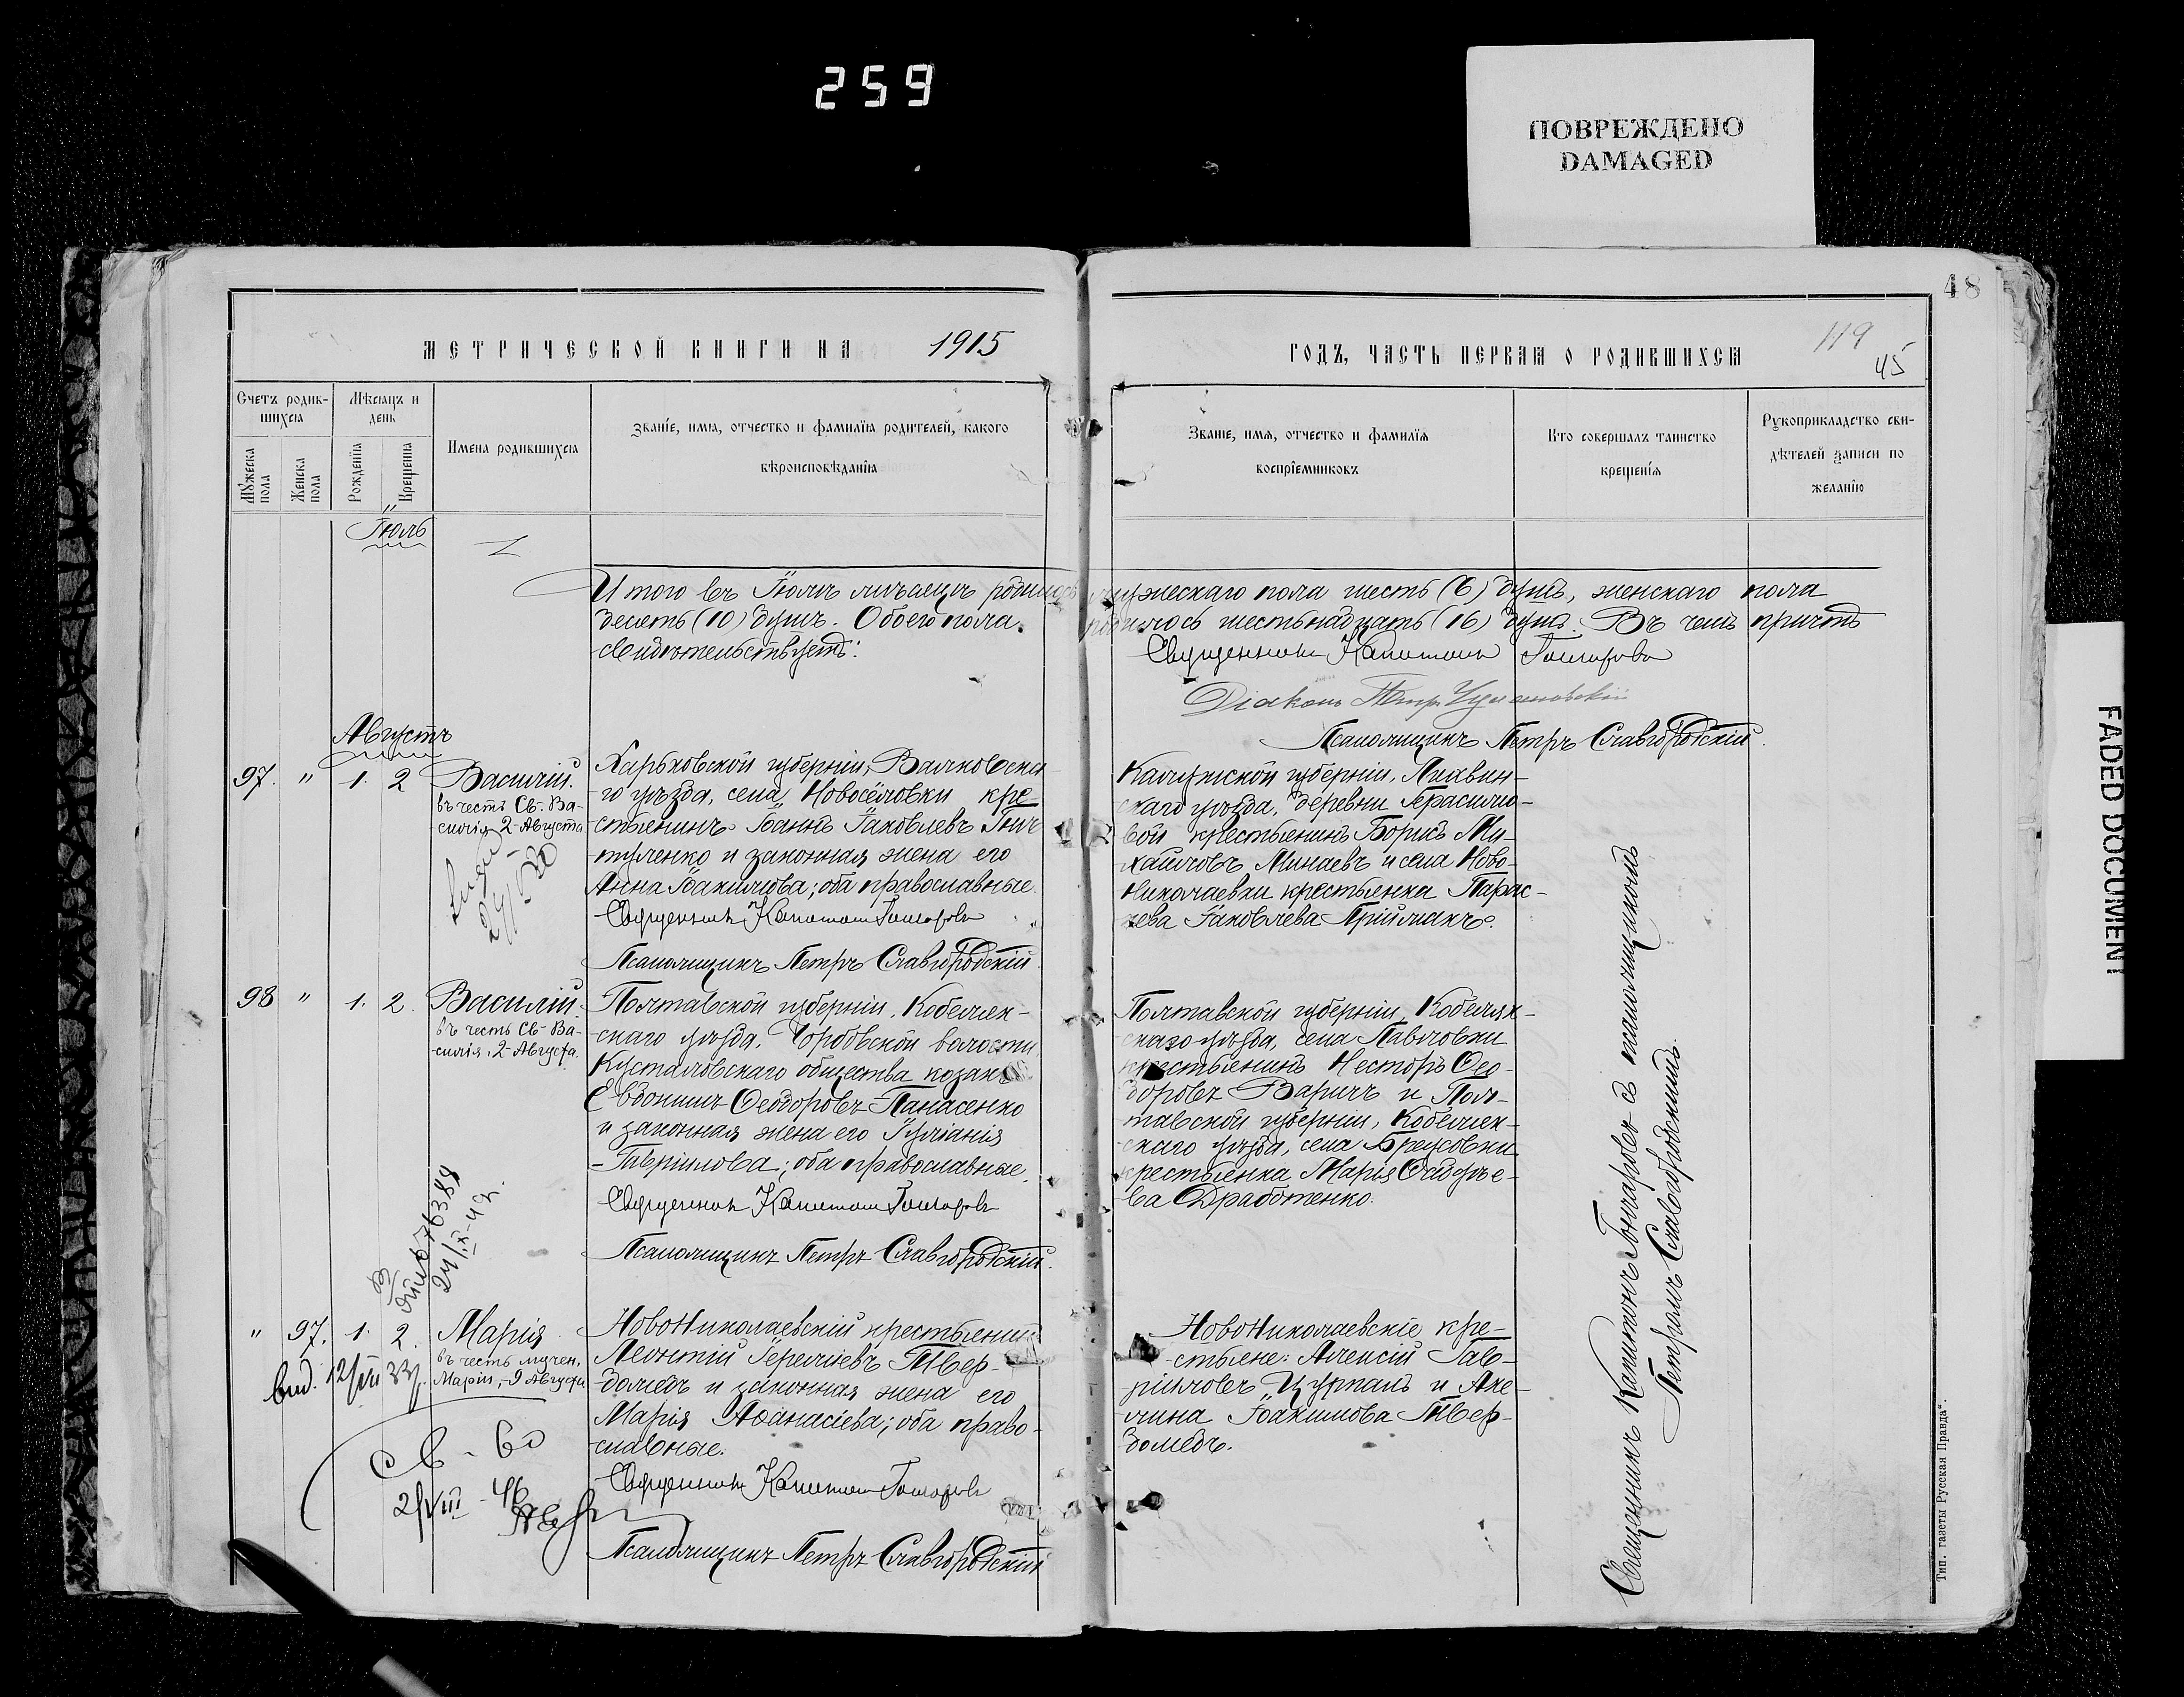 259
ПОВРЕЖДЕНО
DAMAGED
48
МЕТРИЧЕСКОЙ КНИГИ НА 1915
ГОДЪ, ЧАСТЬ ПЕРВАЯ О РОДИВШИХСЯ
119
45
Счетъ родив-
шихся
Мужеска пола
Женска пола
Мѣсяцъ и
день
Рожденія
Крещенія
Имена родившихся
Званіе, имя, отчество и фамилія родителей, какого
вѣроисповѣданія
Званіе, имя, отчество и фамилія
воспріемниковъ
Кто совершалъ таинство
крещенія
Рукоприкладство сви-
дѣтелей записи по
желанію
Іюль
И того въ Іюлѣ мѣсяцѣ родилось мужескаго пола шесть (6) душъ, женскаго пола
десять (10) душъ. Обоего пола родилось шестьнадцать (16) душъ. Въ чемъ причтъ
свидѣтельствуетъ:
Священникъ Капитонъ Гончаровъ
Діаконъ Петръ
Псаломщикъ Петръ Славгородскій.
Августъ
97. " 1. 2 Василій.
въ честь Св. Ва-
силія 2 Августа
Харьковской губерніи, Валковска-
го уѣзда, села Новосёловки кре-
стьянинъ Іоаннъ Іаковлевъ
-туленко и законная жена его
Анна Іоакимова; оба православные.
Священникъ Капитонъ Гончаровъ
Псаломщикъ Петръ Славгородскій.
Калужской губерніи, Лихвин-
скаго уѣзда, деревни Герасимо-
вой крестьянинъ Борисъ Ми-
хайловъ Минаевъ и села Ново-
Николаевки крестьянка Парас-
кева Іаковлева Приймакъ.
98 " 1. 2. Василій.
въ честь Св. Ва-
силія, 2 Августа.
Полтавской губерніи, Кобеляк-
скаго уѣзда, волости
Кусталовскаго общества козакъ
Евдокимъ Ѳеодоровъ Панасенко
и законная жена его Іуліанія
Гавріилова; оба православные.
Священникъ Капитонъ Гончаровъ
Псаломщикъ Петръ Славгородскій.
Полтавской губерніи, Кобеляк-
скаго уѣзда, села Павловки
крестьянинъ Несторъ Ѳео-
доровъ Варичъ и Пол-
тавской губерніи, Кобеляк-
скаго уѣзда, села Бреусовки
крестьянка Марія
ва Дработенко.
76389
" 97. 1. 2. Марія
въ честь мучен.
Маріи, 9 Августа
Вид. 12/VII 33
НовоНиколаевскій крестьянинъ
Леонтій Іереміевъ Твер-
домедъ и законная жена его
Марія Аѳанасіева; оба право-
славные.
Священникъ Капитонъ Гончаровъ
Псаломщикъ Петръ Славгородскій
НовоНиколаевскіе кре-
стьяне: Алексій Гав-
ріиловъ Цурпалъ и Аке-
лина Іоакимова Твер-
домедъ.
Священникъ Капитонъ Гончаровъ съ псаломщикомъ
Петромъ Славгородскимъ.
Тип. газеты Русская Правда".
FADED DOCUMENT